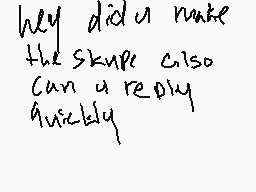 hey did u make
the skype also
can u reply
quickly